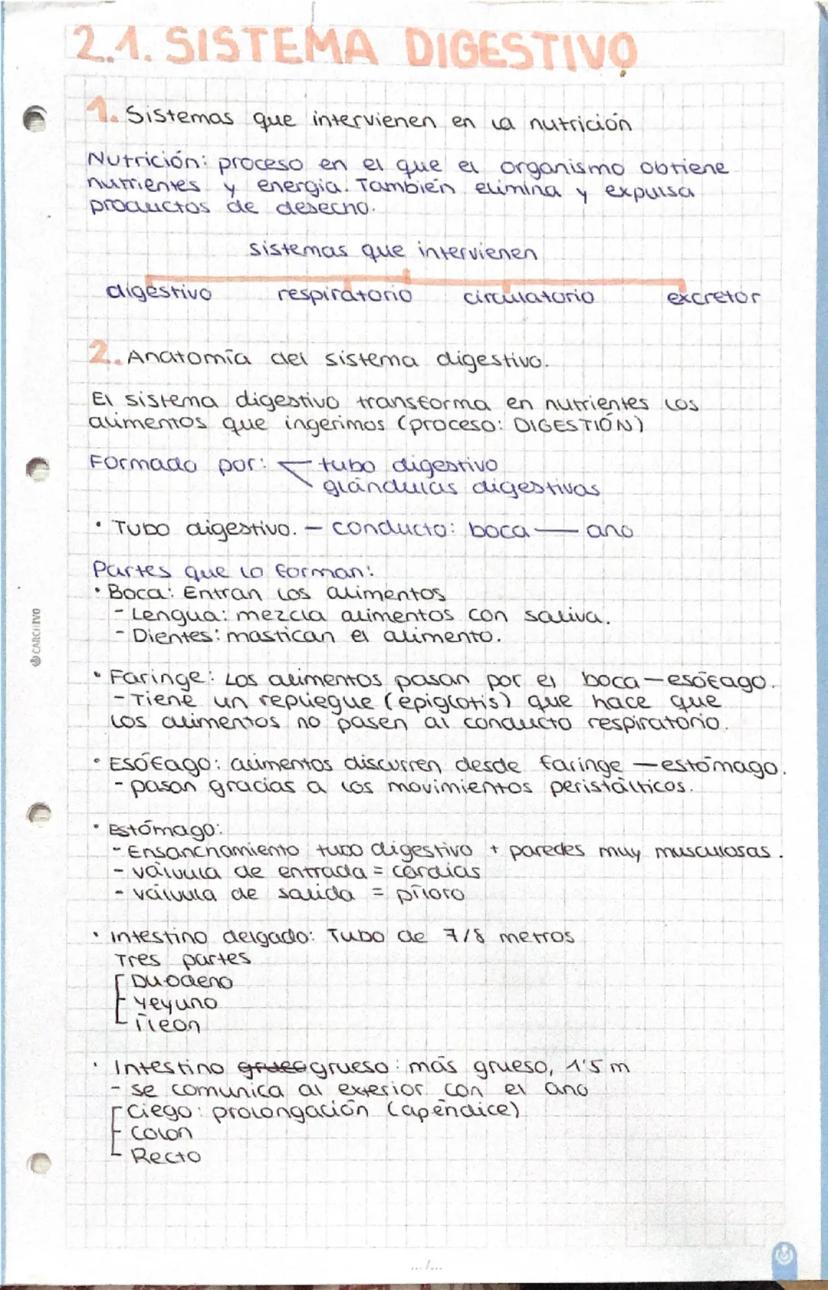 2.1. SISTEMA DIGESTIVO
1. Sistemas que intervienen en la nutrición
Nutrición: proceso en el que el organismo obtiene
nutrientes y energía. También elimina y expulsa
productos de desecho.
sistemas que intervienen
digestivo respiratorio circulatorio excretor
2. Anatomía del sistema digestivo.
El sistema digestivo transforma en nutrientes los
alimentos que ingerimos (proceso: DIGESTIÓN)
Formado por: tubo digestivo
glándulas digestivas
• Tubo digestivo. – conducto: boca — ano
Partes que lo forman:
• Boca: Entran los alimentos
- Lengua: mezcla alimentos con saliva.
- Dientes: mastican el alimento.
• Faringe: Los alimentos pasan por el boca — esófago.
- Tiene un repliegue (epiglotis) que hace que
los alimentos no pasen al conducto respiratorio.
• Esófago: alimentos discurren desde faringe — estómago.
- pasan gracias a los movimientos peristálticos.
• Estómago:
- Ensanchamiento tubo digestivo + paredes muy musculosas.
- válvula de entrada = cardias
- válvula de salida = píloro
• Intestino delgado: Tubo de 7/8 metros
Tres partes
Duodeno
Yeyuno
Íleon
• Intestino grueso: más grueso, 1'5 m
- se comunica al exterior con el ano
Ciego: prolongación (apéndice)
Colon
Recto
CARCHIVO
.../...